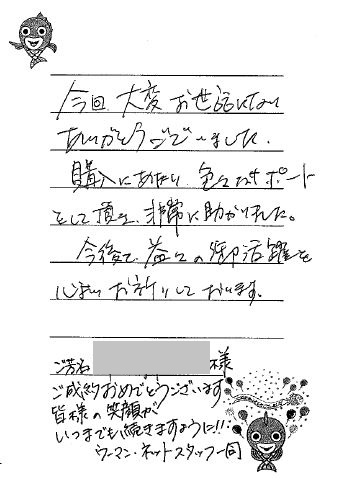 今回、大変お世話になり
ありがとうございました。
購入にあたり、色々なサポート
をして頂き、非常に助かりました。
今後も益々の御活躍を
心よりお祈りしております。
ご芳名 様
ご成約おめでとうございます
皆様の笑顔が
いつまでも続きますように!!
ウーマン・ネットスタッフ一同